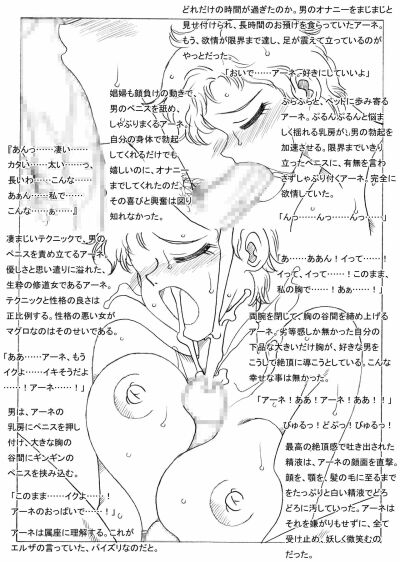 どれだけの時間が過ぎたのか。男のオナニーをまじまじと
見せ付けられ、長時間のお預けを食らっていたアーネ。
もう、欲情が限界まで達し、足が震えて立っているのが
やっとだった。
「おいで……アーネ。好きにしていいよ」
ふらふらと、ベットに歩み寄る
アーネ。ぶるんぶるんと悩ま
しく揺れる乳房が、男の勃起を
加速させる。限界までいきり
立ったペニスに、有無を言わ
さずしゃぶり付くアーネ。完全に
欲情していた。
「んっ……んっ……んっ……」
娼婦も顔負けの動きで、
男のペニスを舐め、
しゃぶりまくるアーネ。
自分の身体で勃起
してくれるだけでも
嬉しいのに、オナニー
までしてくれたのだ。
その喜びと興奮は図り
知れなかった。
『あんっ……凄い……
カタい……太い……っ、
長いわ……こんな……
ああん……私で……
こんな……ぁ……』
凄まじいテクニックで、男の
ペニスを責め立てるアーネ。
優しさと思い遣りに溢れた、
生粋の修道女であるアーネ。
テクニックと性格の良さは
正比例する。性格の悪い女が
マグロなのはそのせいである。
「ああ……アーネ、もう
イクよ……イキそうだよ
……！アーネ……！」
男は、アーネの
乳房にペニスを押し
付け、大きな胸の
谷間にギンギンの
ペニスを挟み込む。
「このまま……イクよ……！
アーネのおっぱいで……！」
アーネは属座に理解する。これが
エルザの言っていた、パイズリなのだと。
「あ……ああん！イって……！
イって、イって……！このまま、
私の胸で……！あぁ……！」
両腕を閉じて、胸の谷間を締め上げる
アーネ。劣等感しか無かった自分の
下品な大きいだけ胸が、好きな男を
こうして絶頂に導こうとしている。こんな
幸せな事は無かった。
「アーネ！ああ！アーネ！ああ！！」
びゅるっ！どぷっ！びゅるっ！
最高の絶頂感で吐き出された
精液は、アーネの顔面を直撃。
頭を、顎を、髪の毛に至るまで
をたっぷりと白い精液でどろ
どろに汚していった。アーネは
それを嫌がりもせずに、全て
受け止め、妖しく微笑むの
だった。